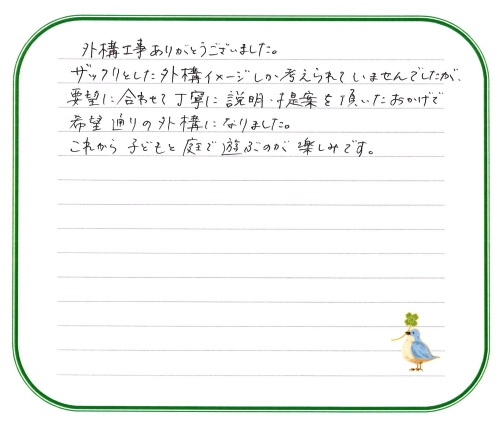 外構工事ありがとうございました。
ザックリとした外構イメージしか考えられていませんでしたが、
要望に合わせて丁寧に説明・提案を頂いたおかげで
希望通りの外構になりました。
これから子どもと庭で遊ぶのが楽しみです。